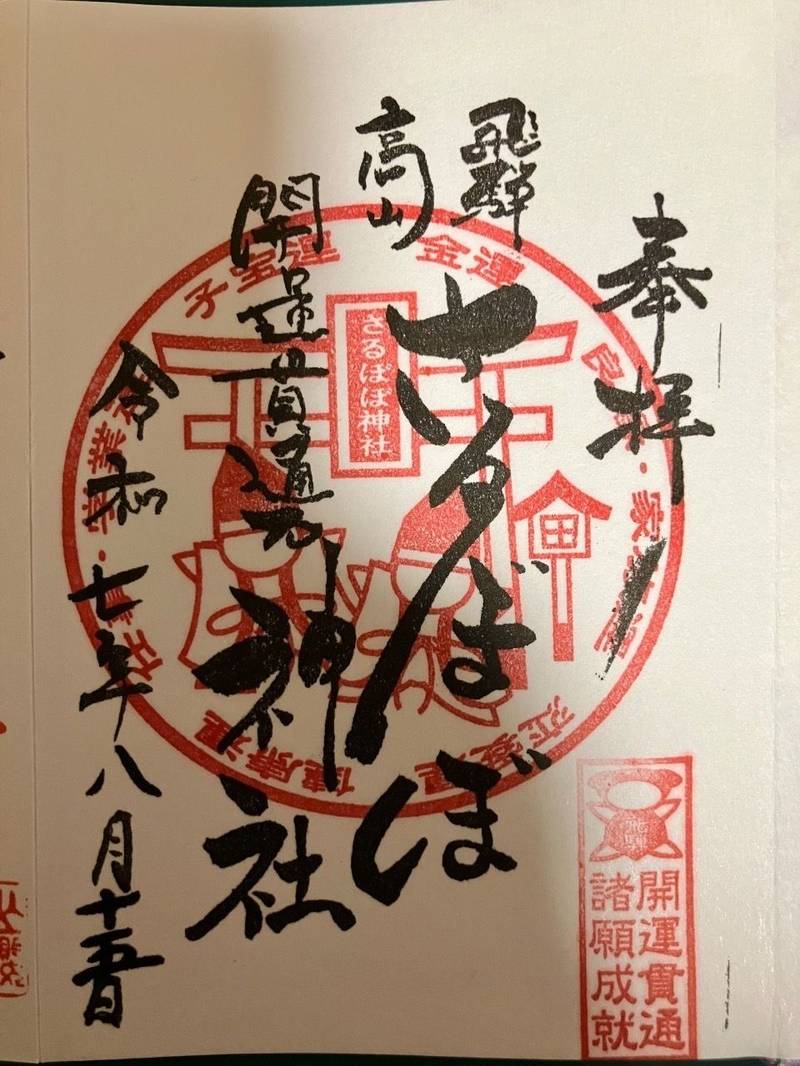 奉拝
飛騨
高山
さるぼぼ
神社
開運貫通
令和七年八月十五日
さるぼぼ神社
金運
子宝運
健康運
開運貫通
諸願成就
飛騨